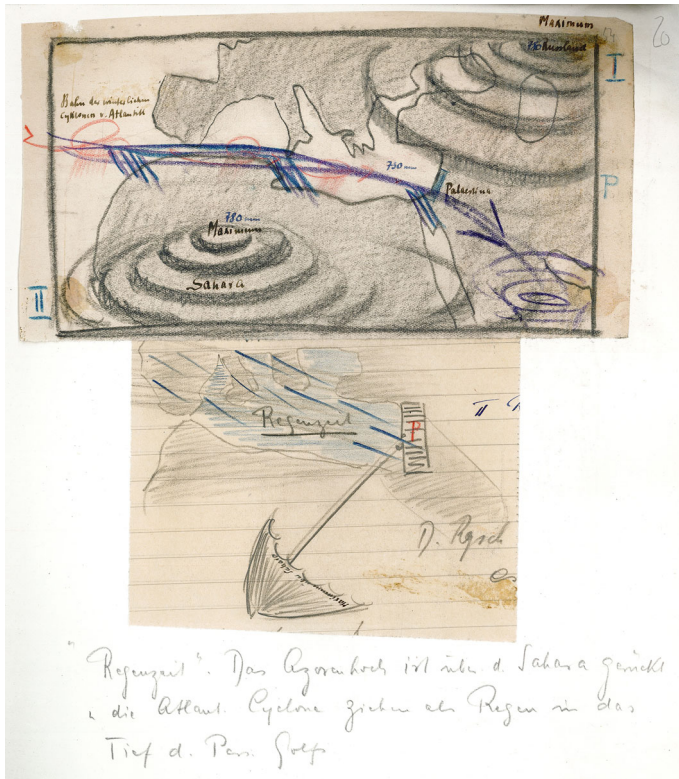 Maximum
20
780 Russland
I
Bahn der winterlichen
Cyklonen v. Atlantik
750 mm
P
Palaestina
780 mm
Maximum
Sahara
II
Regenzeit
P
II
D. Rgsch
"Regenzeit". Das Azorenhoch ist über d. Sahara gerückt
u die Atlant. Cyclone ziehen als Regen in das
Tief d. Pers. Golfs